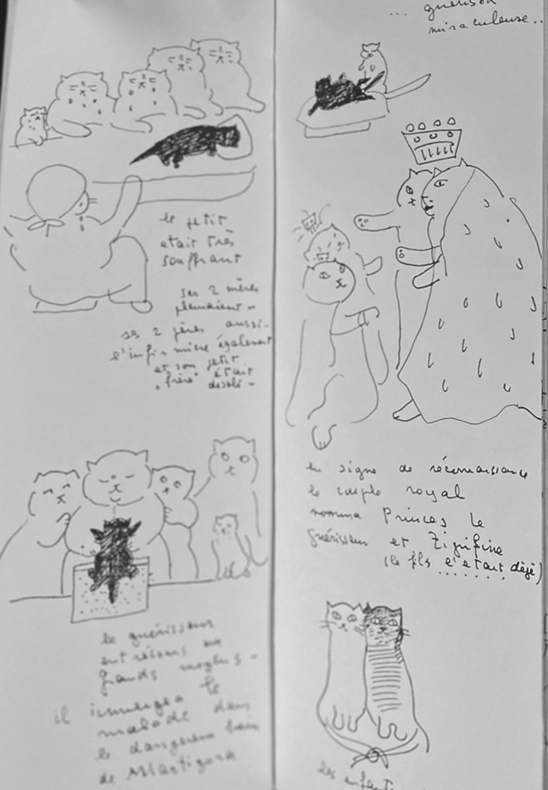 le petit
était très
souffrant
ses 2 mères
pleuraient -
ses 2 pères aussi -
l'infirmière également
et son petit
"frère" était
désolé -
le guérisseur
eut recours aux
grands moyens -
il immergea le
malade dans
le dangereux bain
de Martigora
... guérison
miraculeuse..
en signe de réconnaissance
le couple royal
nomma Princes le
Guérisseur et Zigifine
(le fils l'était déjà)
les enfant